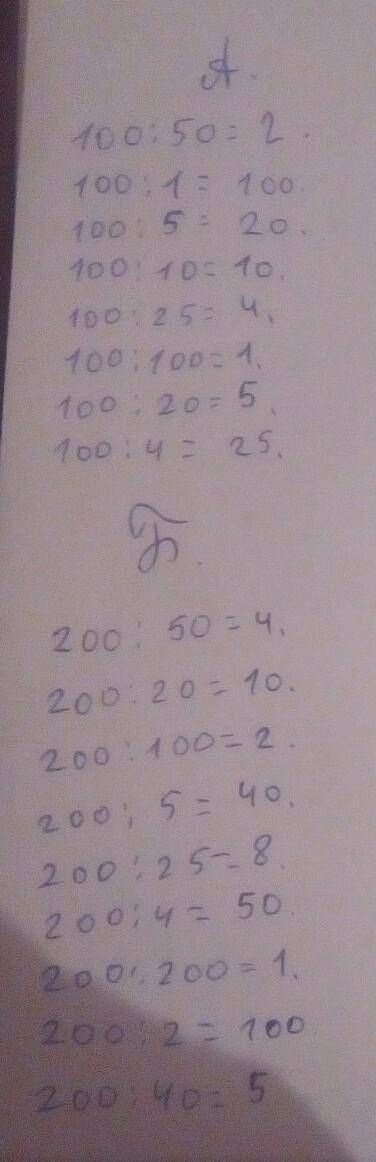 А.
100 : 50 = 2.
100 : 1 = 100.
100 : 5 = 20.
100 : 10 = 10.
100 : 25 = 4.
100 : 100 = 1.
100 : 20 = 5.
100 : 4 = 25.
Б.
200 : 50 = 4.
200 : 20 = 10.
200 : 100 = 2.
200 : 5 = 40.
200 : 25 = 8.
200 : 4 = 50.
200 : 200 = 1.
200 : 2 = 100
200 : 40 = 5